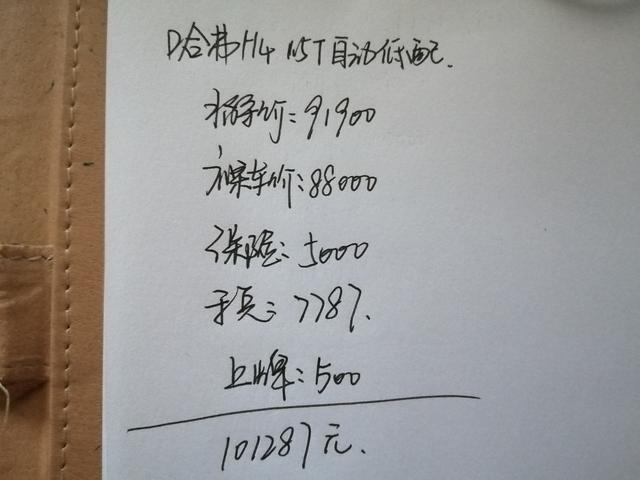 D哈弗H4 1.5T自动低配.
指导价:91900
裸车价:88000
保险:5000
7787.
上牌:500
101287元.